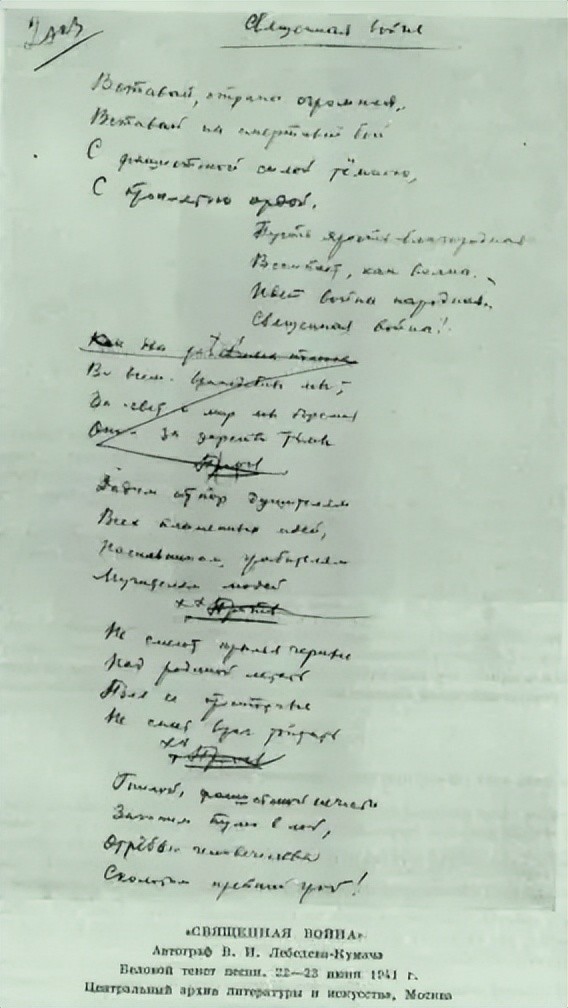 Священная война
Вставай, страна огромная,
Вставай на смертный бой
С фашистской силой тёмною,
С проклятою ордой.
Пусть ярость благородная
Вскипает, как волна.
Идет война народная,
Священная война!
Как два различных полюса
Во всем враждебны мы;
За свет и мир мы боремся
Они за царство тьмы
Припев
Дадим отпор душителям
Всех пламенных идей,
Насильникам, грабителям
Мучителям людей
Припев
Не смеют крылья черные
Над родиной летать
Поля ее просторные
Не смеет враг топтать
Припев
Гнилой, фашистской нечисти
Загоним пулю в лоб,
Отребью человечества
Сколотим крепкий гроб!
«СВЯЩЕННАЯ ВОЙНА»
Автограф В. И. Лебедева-Кумача
Беловой текст песни. 22—23 июня 1941 г.
Центральный архив литературы и искусства, Москва